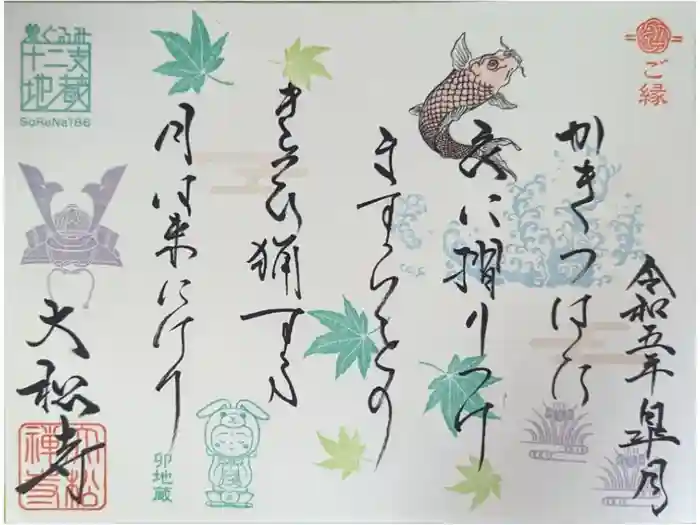 ご縁
令和五年 皐月
かきつはた
衣に摺りつけ
ますらをの
きそひ猟する
月は来にけり
着ぐるみ
十二支
地蔵
SoReNa186
大松寺
卯地蔵